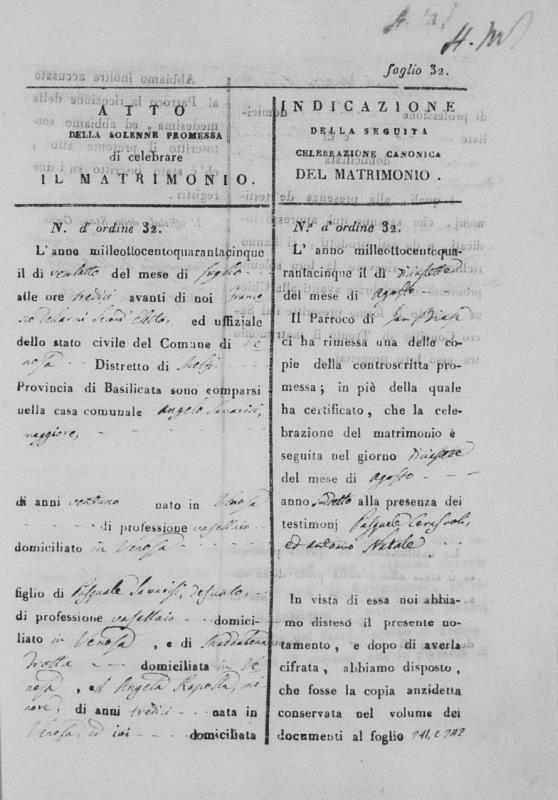 foglio 32.
ATTO
DELLA SOLENNE PROMESSA
di celebrare
IL MATRIMONIO.
N. d'ordine 32.
L'anno milleottocentoquarantacinque
il di ventotto del mese di luglio
alle ore tredici avanti di noi
ed uffiziale
dello stato civile del Comune di Ve
nosa Distretto di Melfi
Provincia di Basilicata sono comparsi
nella casa comunale Angelo Savarisi,
maggiore,
di anni ventuno nato in Venosa
di professione vasellaio
domiciliato in Venosa
figlio di Pasquale Savarisi,
di professione vasellaio domici-
liato in Venosa, e di Maddalena
Trotta domiciliata in Ve
nosa, ed Angela Rapolla, mi
nore, di anni tredici nata in
Venosa, ed ivi domiciliata
INDICAZIONE
DELLA SEGUITA
CELEBRAZIONE CANONICA
DEL MATRIMONIO.
N.° d'ordine 32.
L' anno milleottocentoqua-
rantacinque il di diciassette
del mese di agosto
Il Parroco di San Biase
ci ha rimessa una delle co-
pie della controscritta pro-
messa; in piè della quale
ha certificato, che la cele-
brazione del matrimonio è
seguita nel giorno diciassette
del mese di agosto
anno sudetto alla presenza dei
testimonj Pasquale
ed Antonio Natale
In vista di essa noi abbia-
mo disteso il presente no-
tamento, e dopo di averla
cifrata, abbiamo disposto,
che fosse la copia anzidetta
conservata nel volume dei
documenti al foglio 241, e 242